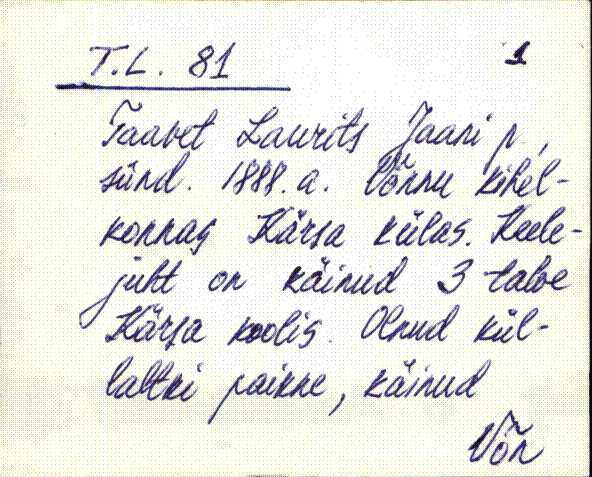 T.L. 81 1
Taavet Laurits Jaani p.,
sünd. 1888. a. Võnnu kihel-
konnas Kärsa külas. Keele-
juht on käinud 3 talve
Kärsa koolis. Olnud kül-
laltki paikne, käinud
Võn